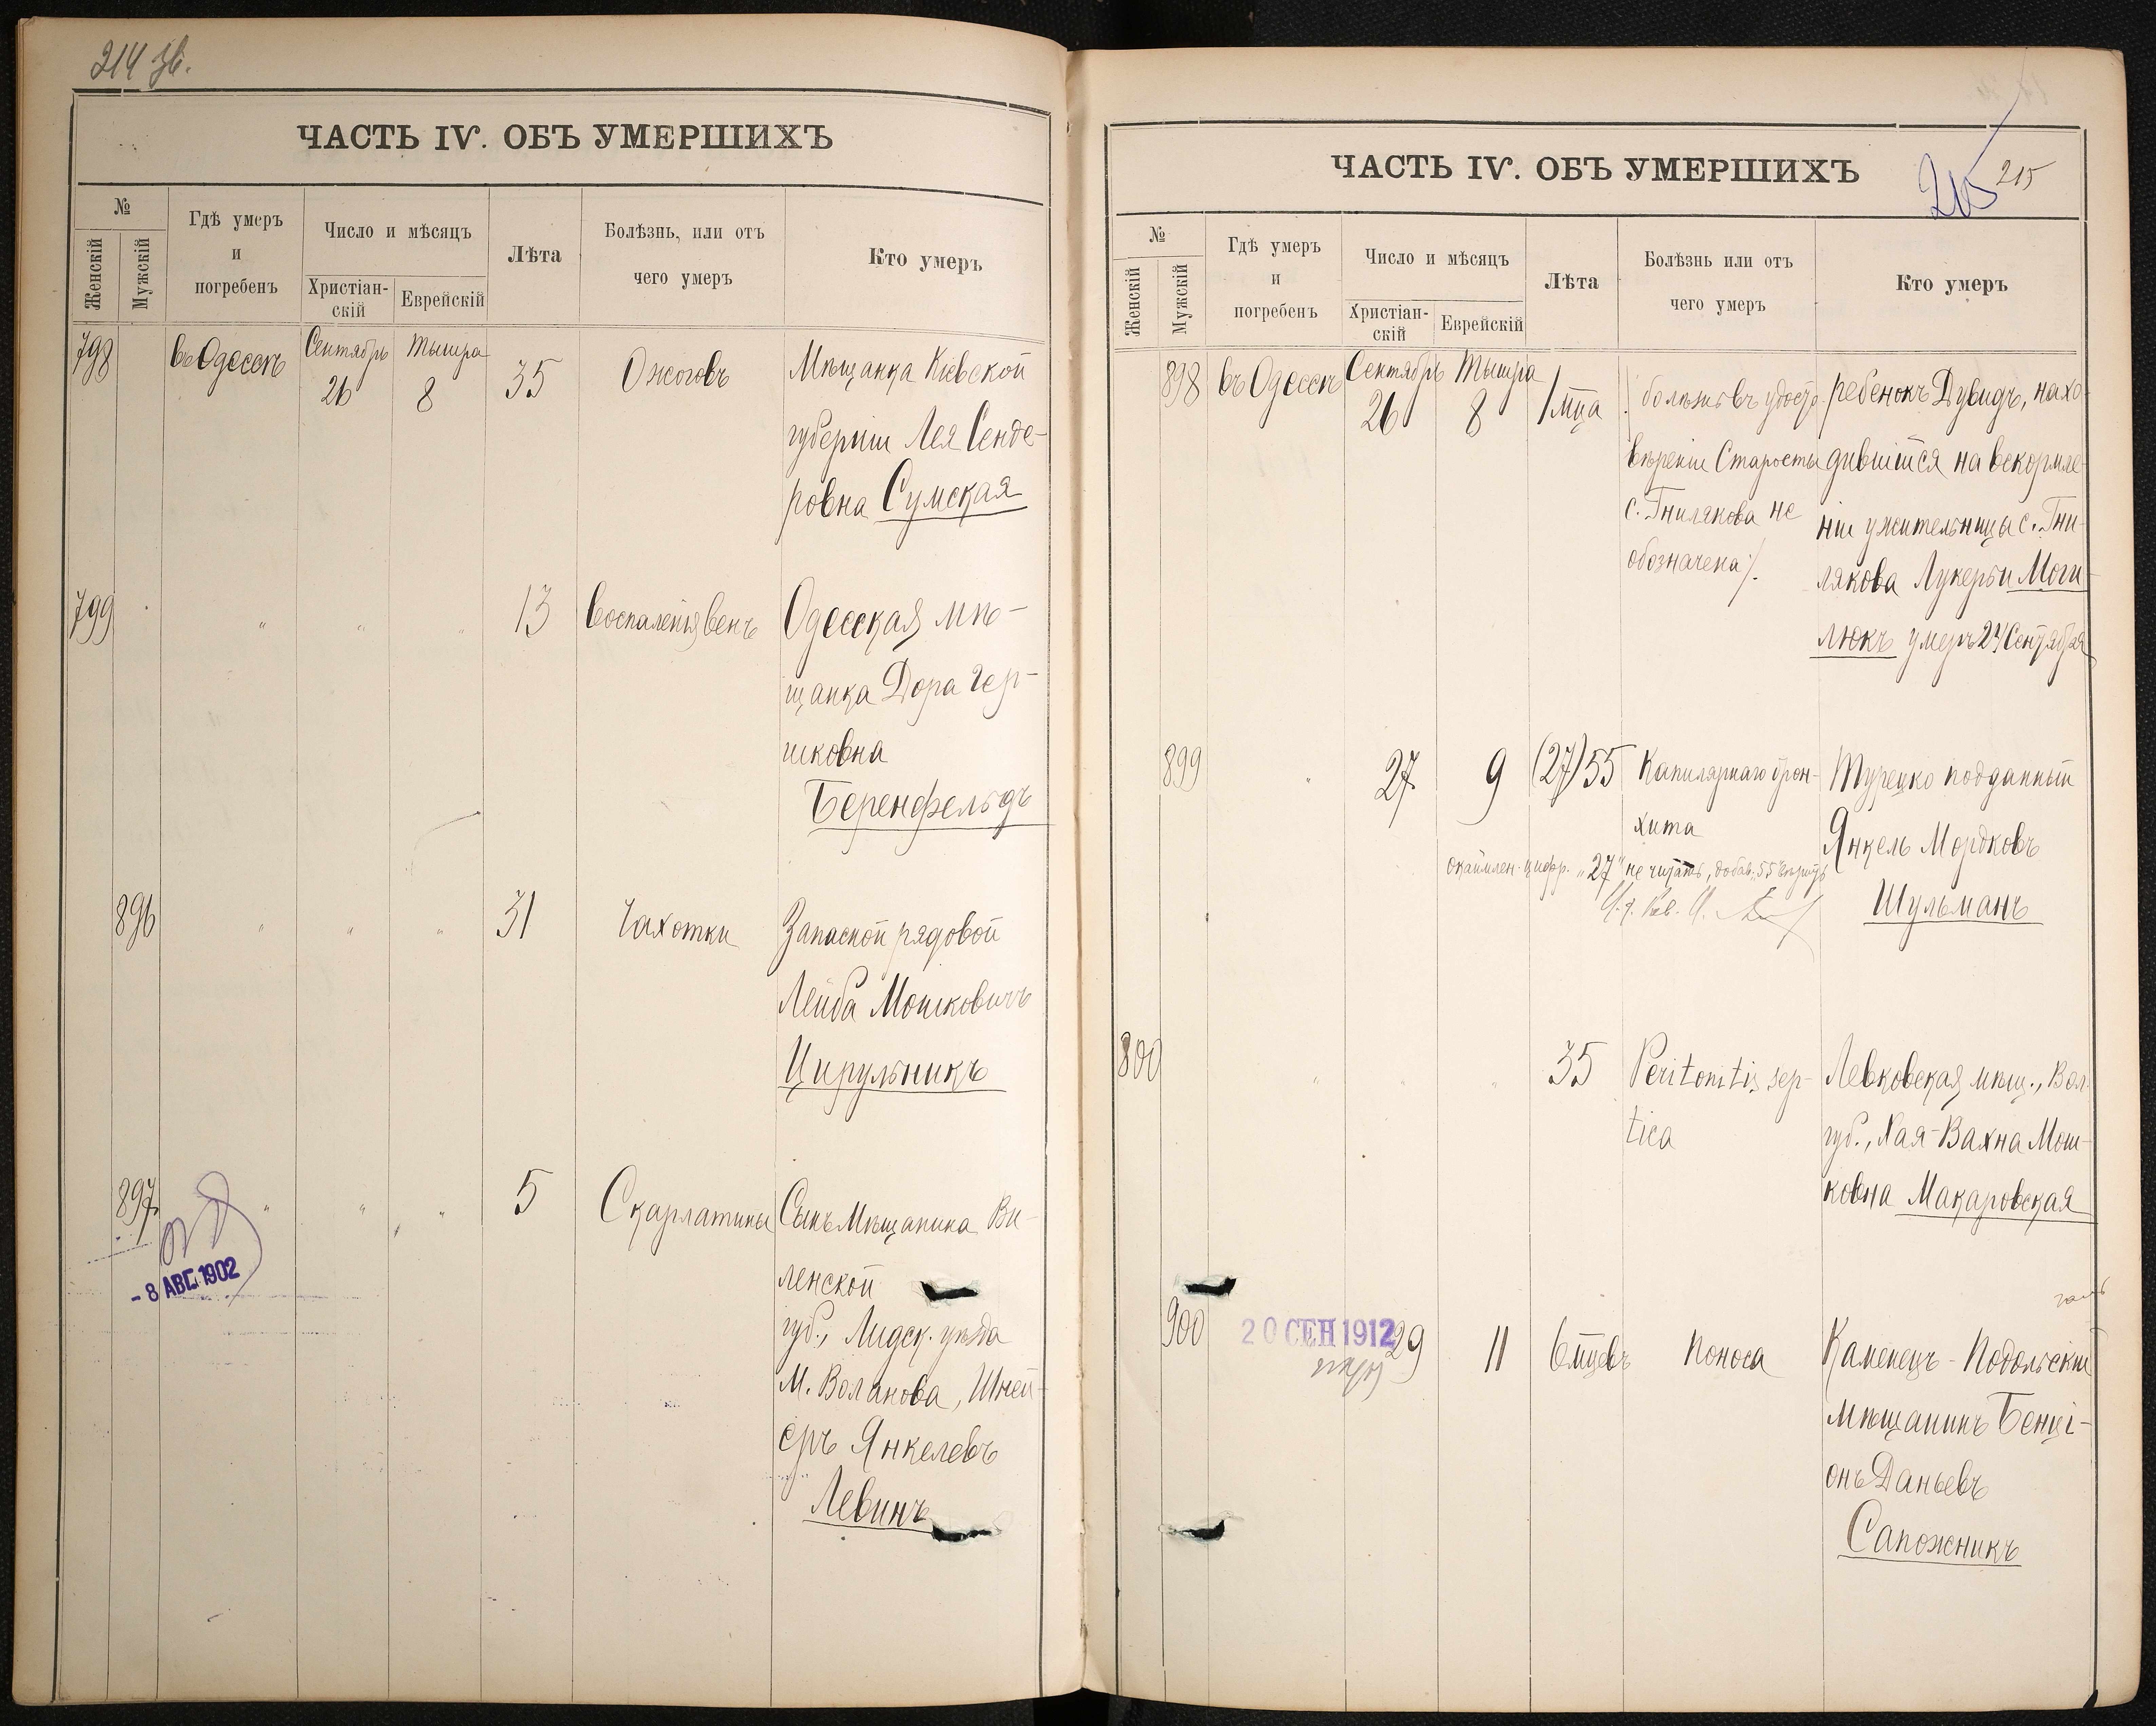 214 зв.
ЧАСТЬ IV. ОБЪ УМЕРШИХЪ
№
Женскій
Мужскій
Гдѣ умеръ
и
погребенъ
Число и мѣсяцъ
Христіан-
скій
Еврейскій
Лѣта
Болѣзнь, или отъ
чего умеръ
Кто умеръ
798
въ Одессѣ
Сентябрь
26
Тышра
8
35
Ожоговъ
Мѣщанка Кіевской
губерніи Лея Сенде-
ровна Сумская
799
"
"
"
13
Воспаленія венъ
Одесская мѣ-
щанка Дора Гер-
шковна
Беренфельдъ
896
"
"
"
31
Чахотки
Запасной рядовой
Лейба Мошковичъ
Цирульникъ
897
"
"
"
5
Скарлатины
Сынъ Мѣщанина Ви-
ленской
губ., Лидск. уѣзда
М. Воланова, Шней-
еръ Янкелевъ
Левинъ
- 8 АВГ. 1902
ЧАСТЬ IV. ОБЪ УМЕРШИХЪ
215
215
№
Женскій
Мужскій
Гдѣ умеръ
и
погребенъ
Число и мѣсяцъ
Христіан-
скій
Еврейскій
Лѣта
Болѣзнь или отъ
чего умеръ
Кто умеръ
898
въ Одессѣ
Сентябрь
26
Тышра
8
1 мца
/болѣзнь въ удосто-
вѣреніи Старосты
с. Гнилякова не
обозначена/.
ребенокъ Дувидъ, нахо-
дившійся на вскормле-
ніи у жительницы с. Гни-
лякова Лукерьи Моги-
люкъ умеръ 24 Сентября
899
"
27
9
(27) 55
Капилярнаго брон-
хита
Турецко подданный
Янкель Мордковъ
Шульманъ
окаймлен. цифр. „27" не читать, добав. „55" вѣрить
800
"
"
"
35
Peritonitis sep-
tica
Левковская мѣщ., Вол.
губ., Хая-Вахна Мош-
ковна Макаровская
900
20 СЕН 1912
29
11
6 мцевъ
Поноса
Каменецъ-Подольскій
мѣщанинъ Бенці-
онъ Даньевъ
Сапожникъ